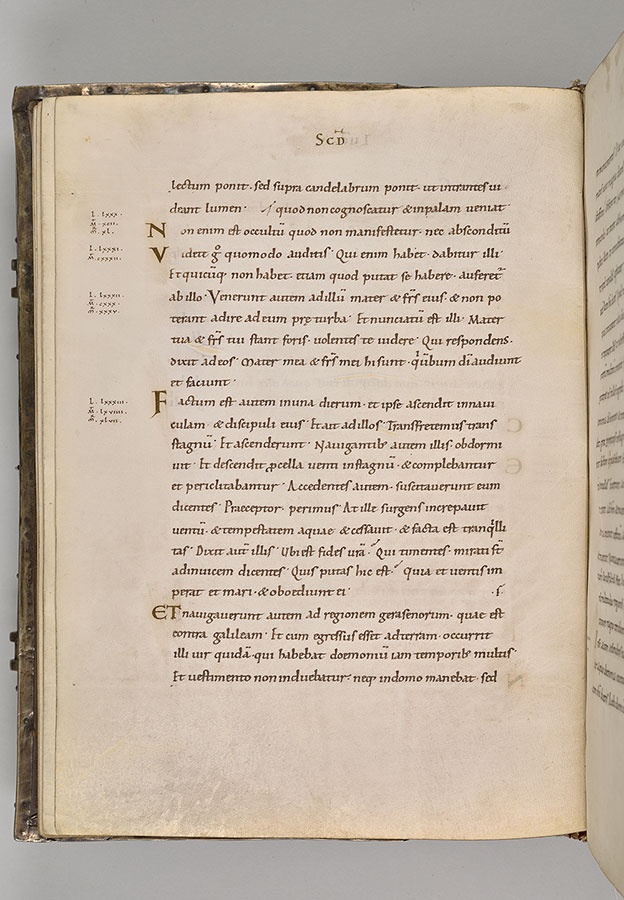 SCD̄
lectum ponit· sed supra candelabrum ponit· ut intrantes ui
deant lumen· quod non cognoscatur & inpalam veniat·
L· lxxx·
M̄· xiii·
M̄· xl·
Non enim est occultū quod non manifestetur· nec absconditū
L· lxxxi·
M̄· cxxxii·
Videte gͦ quomodo auditis· Qui enim habet· dabitur illi·
Et quicūq; non habet· etiam quod putat se habere· auferet᷑
L· lxxxii·
M̄· cxxx·
M̄· xxxv·
ab illo· Venerunt autem ad illū mater & fr̄s eius· & non po
terant adire ad eum prę turba· Et nunciatū est illi· Mater
tua & fr̄s tui stant foris· volentes te videre· Qui respondens·
dixit ad eos· Mater mea & fr̄s mei hi sunt· qͥ uerbum dī audiunt
et faciunt·
L· lxxxiii·
M̄· lxviiii·
M̄· xlvii·
Factum est autem in una dierum· et ipse ascendit in naui
culam· & discipuli eius· Et ait ad illos· Transfretemus trans
stagnū· Et ascenderunt· Navigantib; autem illis· obdormi
uit· Et descendit procella venti in stagnū· & complebantur
et periclitabantur· Accedentes autem· suscitaverunt eum
dicentes· Praeceptor· perimus· At ille surgens increpavit
ventū· & tempestatem aquae· & cessavit· & facta est tranqͥlli
tas· Dixit aut̄ illis· Ubi est fides vr̄a· Qui timentes· mirati st̄
adinvicem dicentes· Quis putas hic est· quia et ventis im
perat et mari· & oboediunt ei·
ET navigaverunt autem ad regionem gerasenorum· quae est
contra galileam· Et cum egressus esset ad terram· occurrit
illi vir quidā· qui habebat doemoniū iam temporib; multis·
Et vestimento non induebatur· neq; in domo manebat· sed